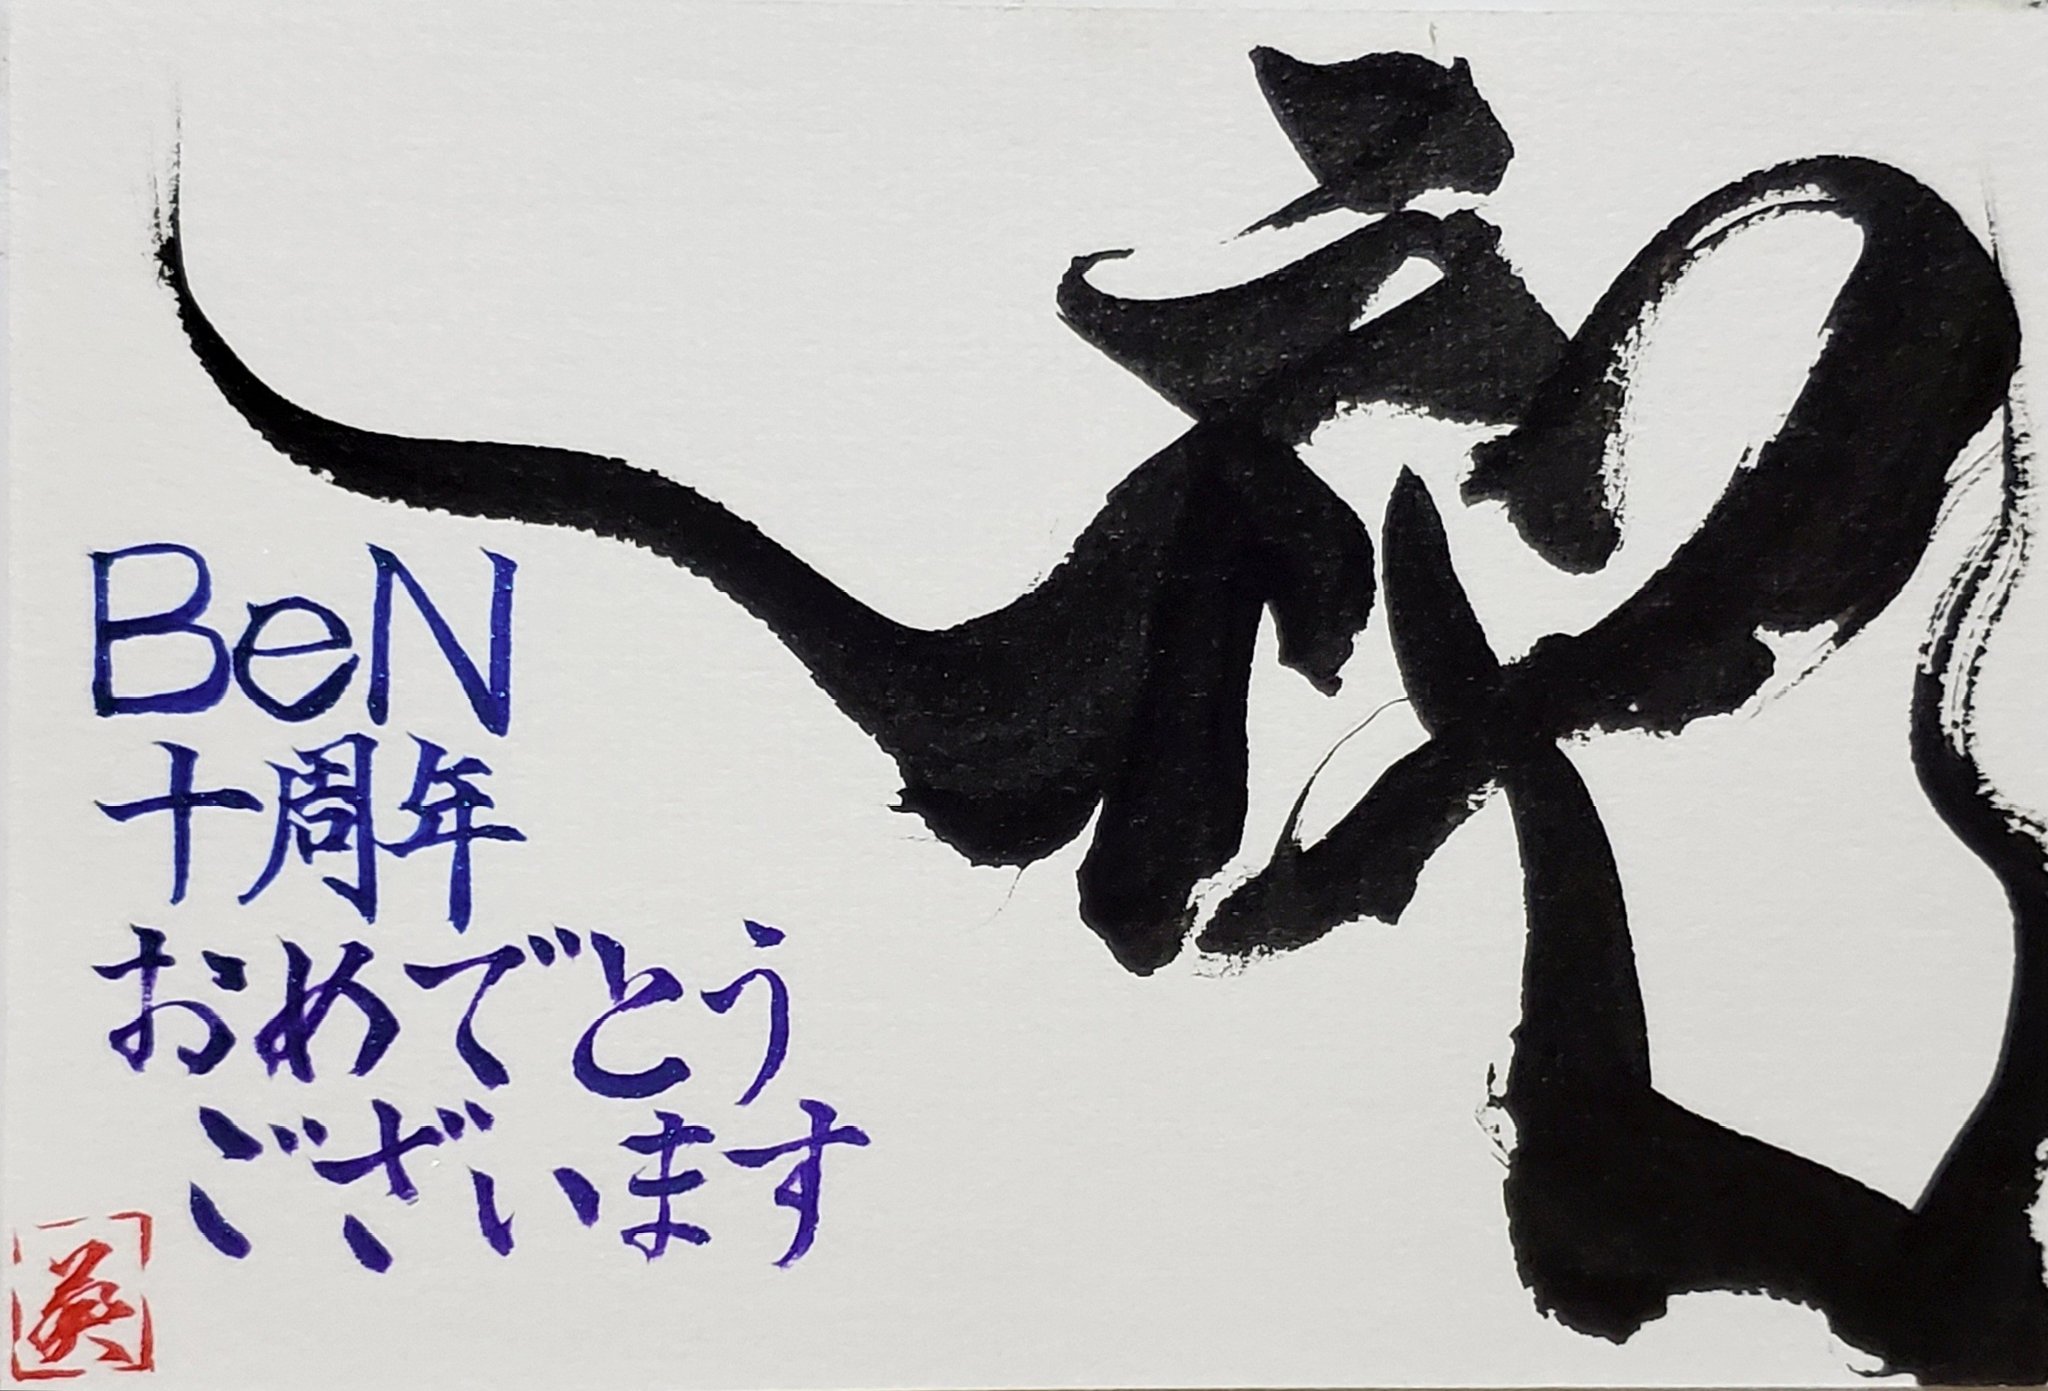 祝
BeN
十周年
おめでとう
ございます